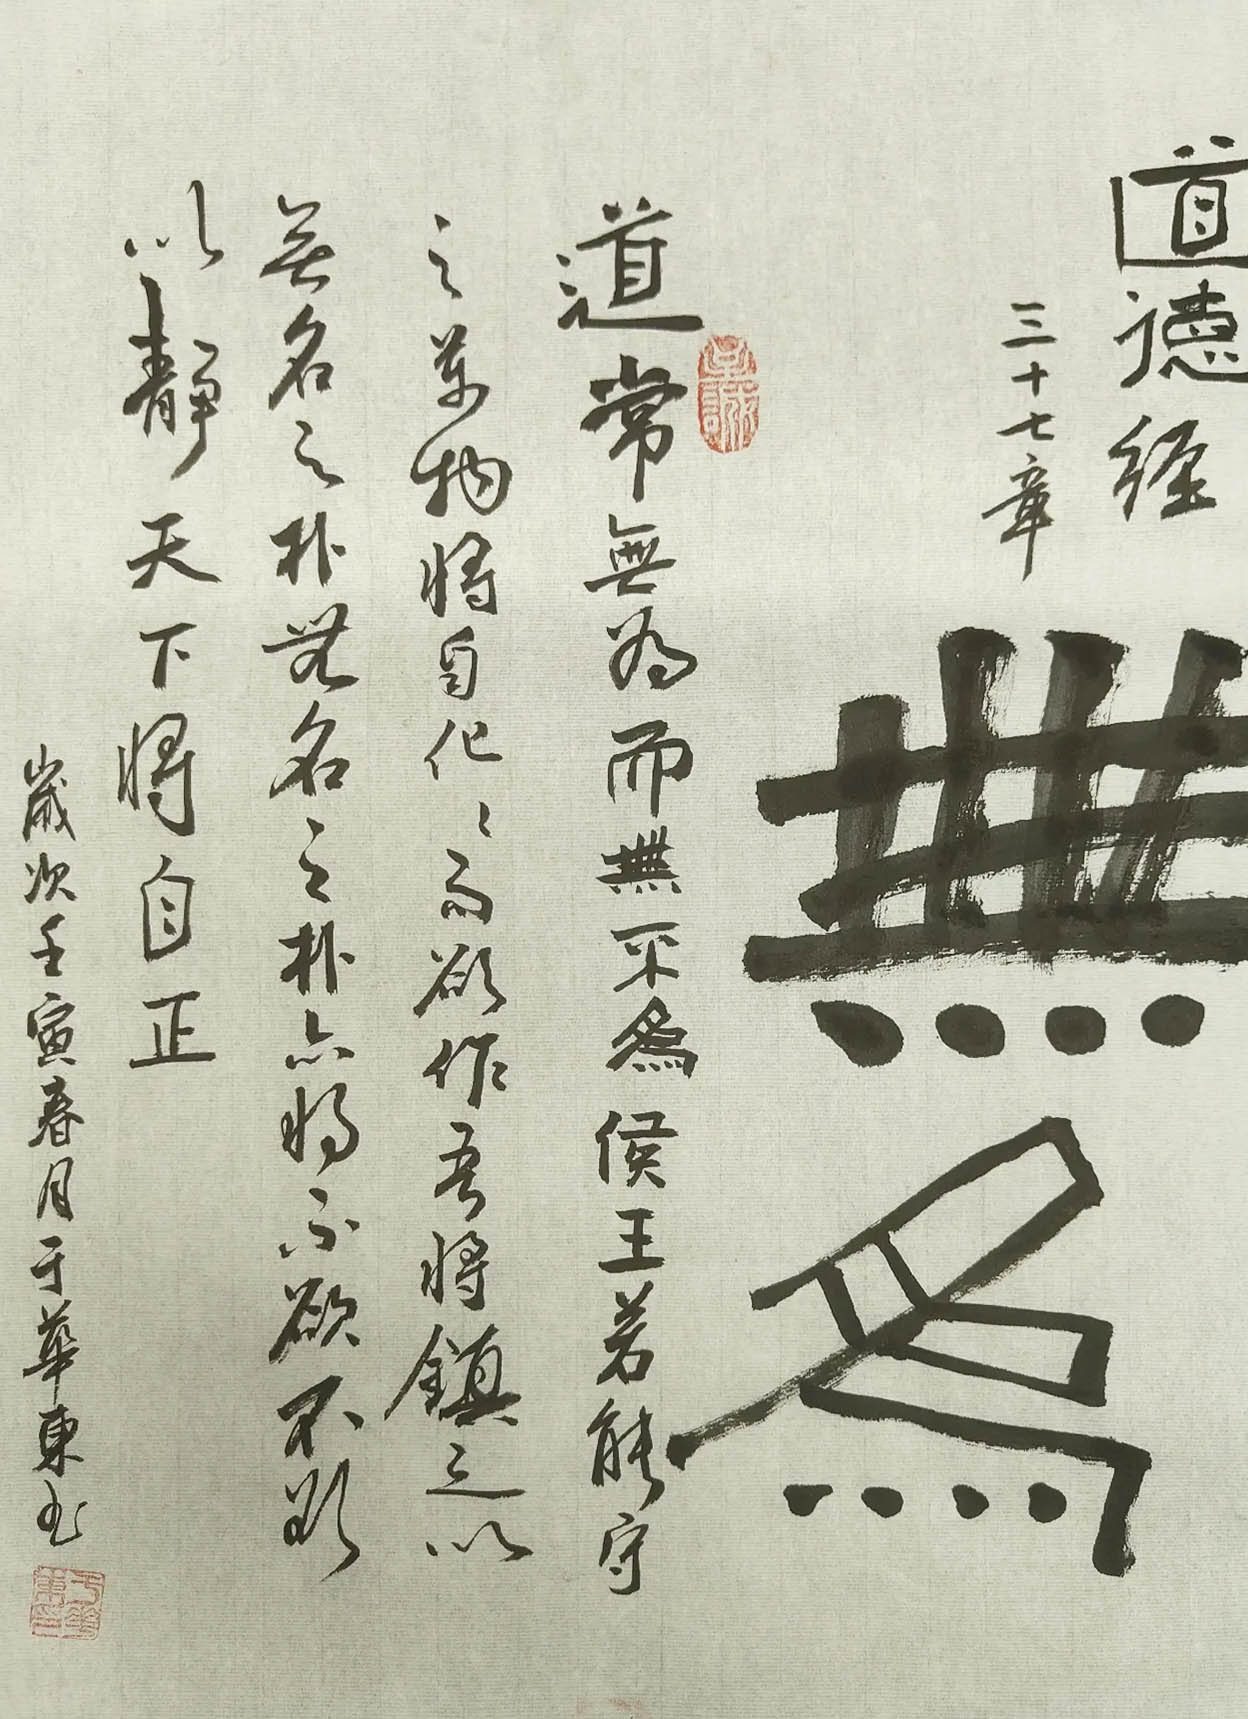 道德经
三十七章
無為
至誠
道常無為而無不為侯王若能守
之萬物將自化〻而欲作吾將鎮之以
無名之朴無名之朴亦將不欲不欲
以靜天下將自正
歲次壬寅春月于華東书
于華東印